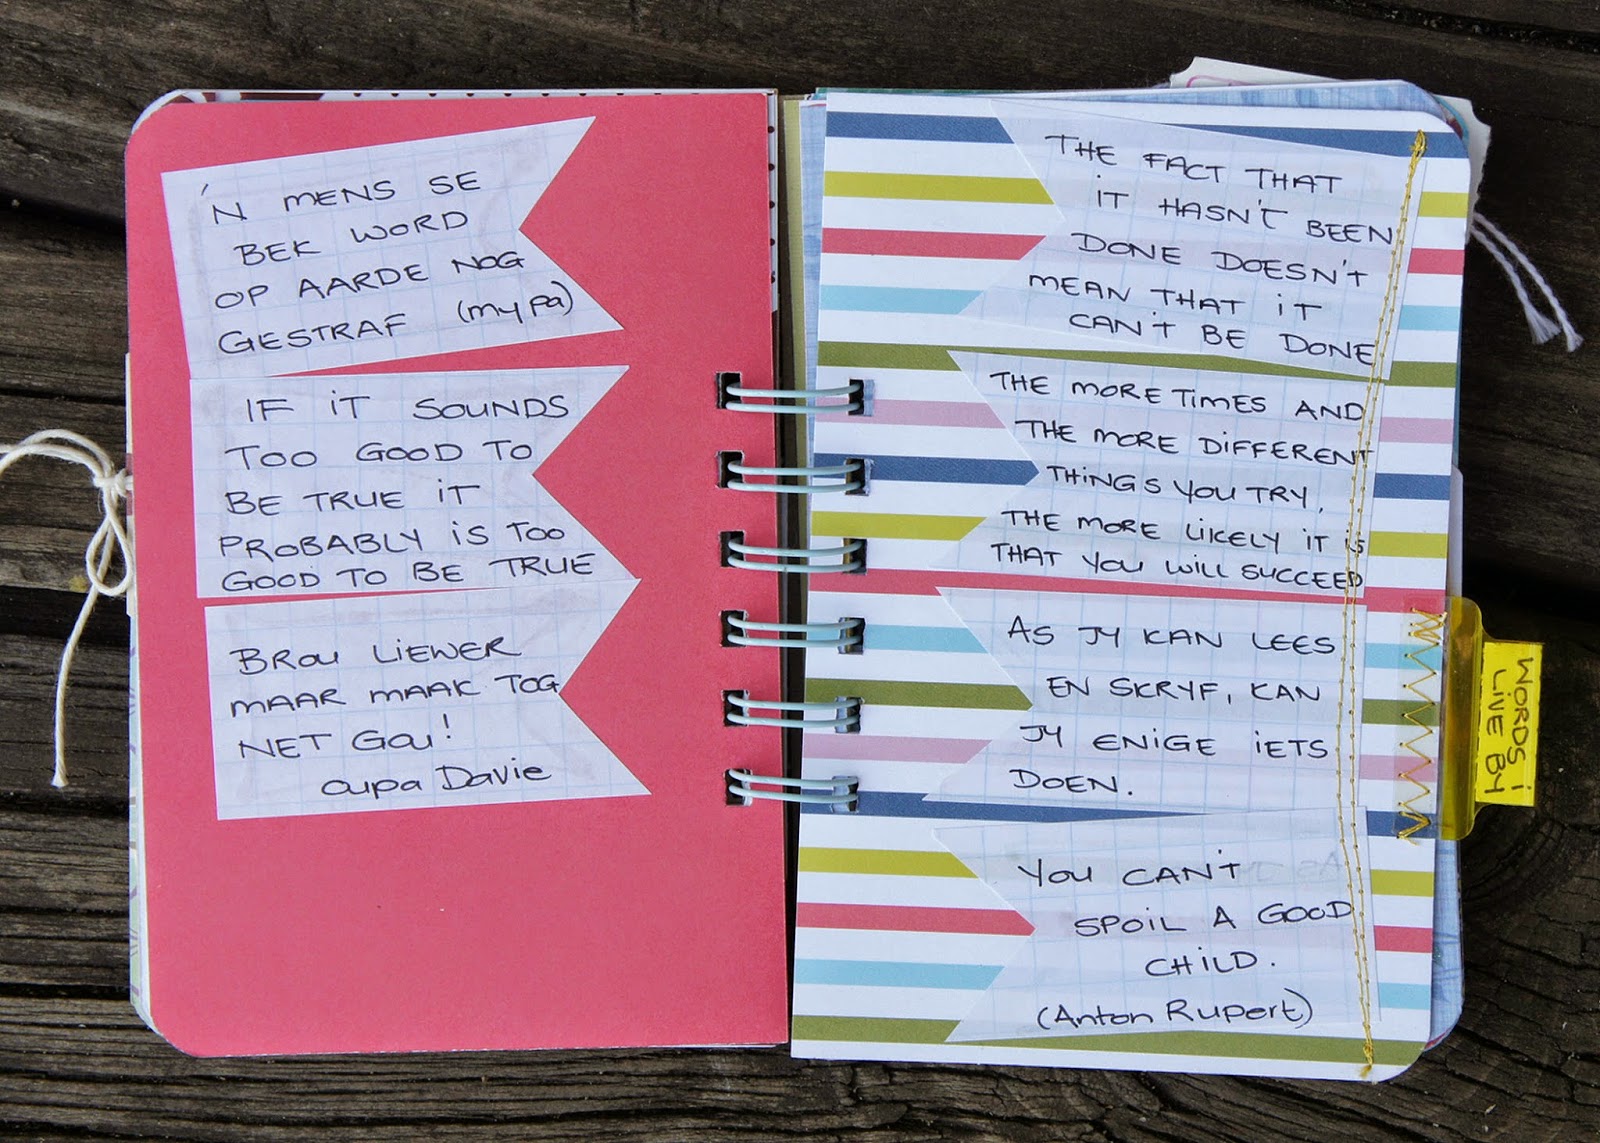 'N MENS SE
BEK WORD
OP AARDE NOG
GESTRAF (my pa)
IF IT SOUNDS
TOO GOOD TO
BE TRUE IT
PROBABLY IS TOO
GOOD TO BE TRUE
BROU LIEWER
MAAR MAAK TOG
NET GOU!
oupa Davie
THE FACT THAT
IT HASN'T BEEN
DONE DOESN'T
MEAN THAT IT
CAN'T BE DONE
THE MORE TIMES AND
THE MORE DIFFERENT
THINGS YOU TRY,
THE MORE LIKELY IT IS
THAT YOU WILL SUCCEED
AS JY KAN LEES
EN SKRYF, KAN
JY ENIGE IETS
DOEN.
YOU CAN'T
SPOIL A GOOD
CHILD.
(Anton Rupert)
WORDS I
LIVE BY